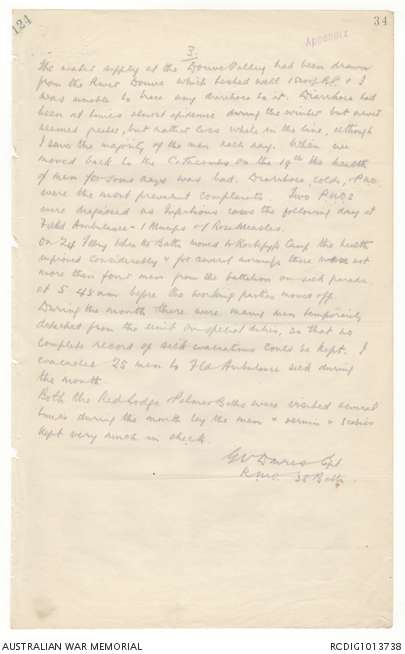 124
34
Appendix
3.
The water supply at the Douve Valley had been drawn
from the River Douve which tested well &
was unable to trace any diarrhoea to it. Diarrhoea had
been at times almost epidemic during the winter but never
seemed greater, but rather less while in the line, although
I saw the majority of the men each day. When we
moved back to the Catacombs on the 19th the health
of men for some days was bad. Diarrhoea, colds, & PUO
were the most prevalent complaints. Two PUOs
were diagnosed as infectious cases the following day at
Field Ambulance - 1 Mumps & 1 Rose Measles.
On 24 Feby when the Battn moved to Camp the health
improved considerably & for several mornings there were not
more than four men from the battalion on sick parade
at 5.45 am before the working parties moved off.
During the month there were many men temporarily
detached from the unit on special duties, so that no
complete record of sick evacuations could be kept. I
evacuated 25 men to Fld Ambulance sick during
the month.
Both the Red Lodge & Baths were visited several
times during the month by the men & vermin & scabies
kept very much in check.
Capt
RMO 38 Battn
AUSTRALIAN WAR MEMORIAL
RCDIG1013738